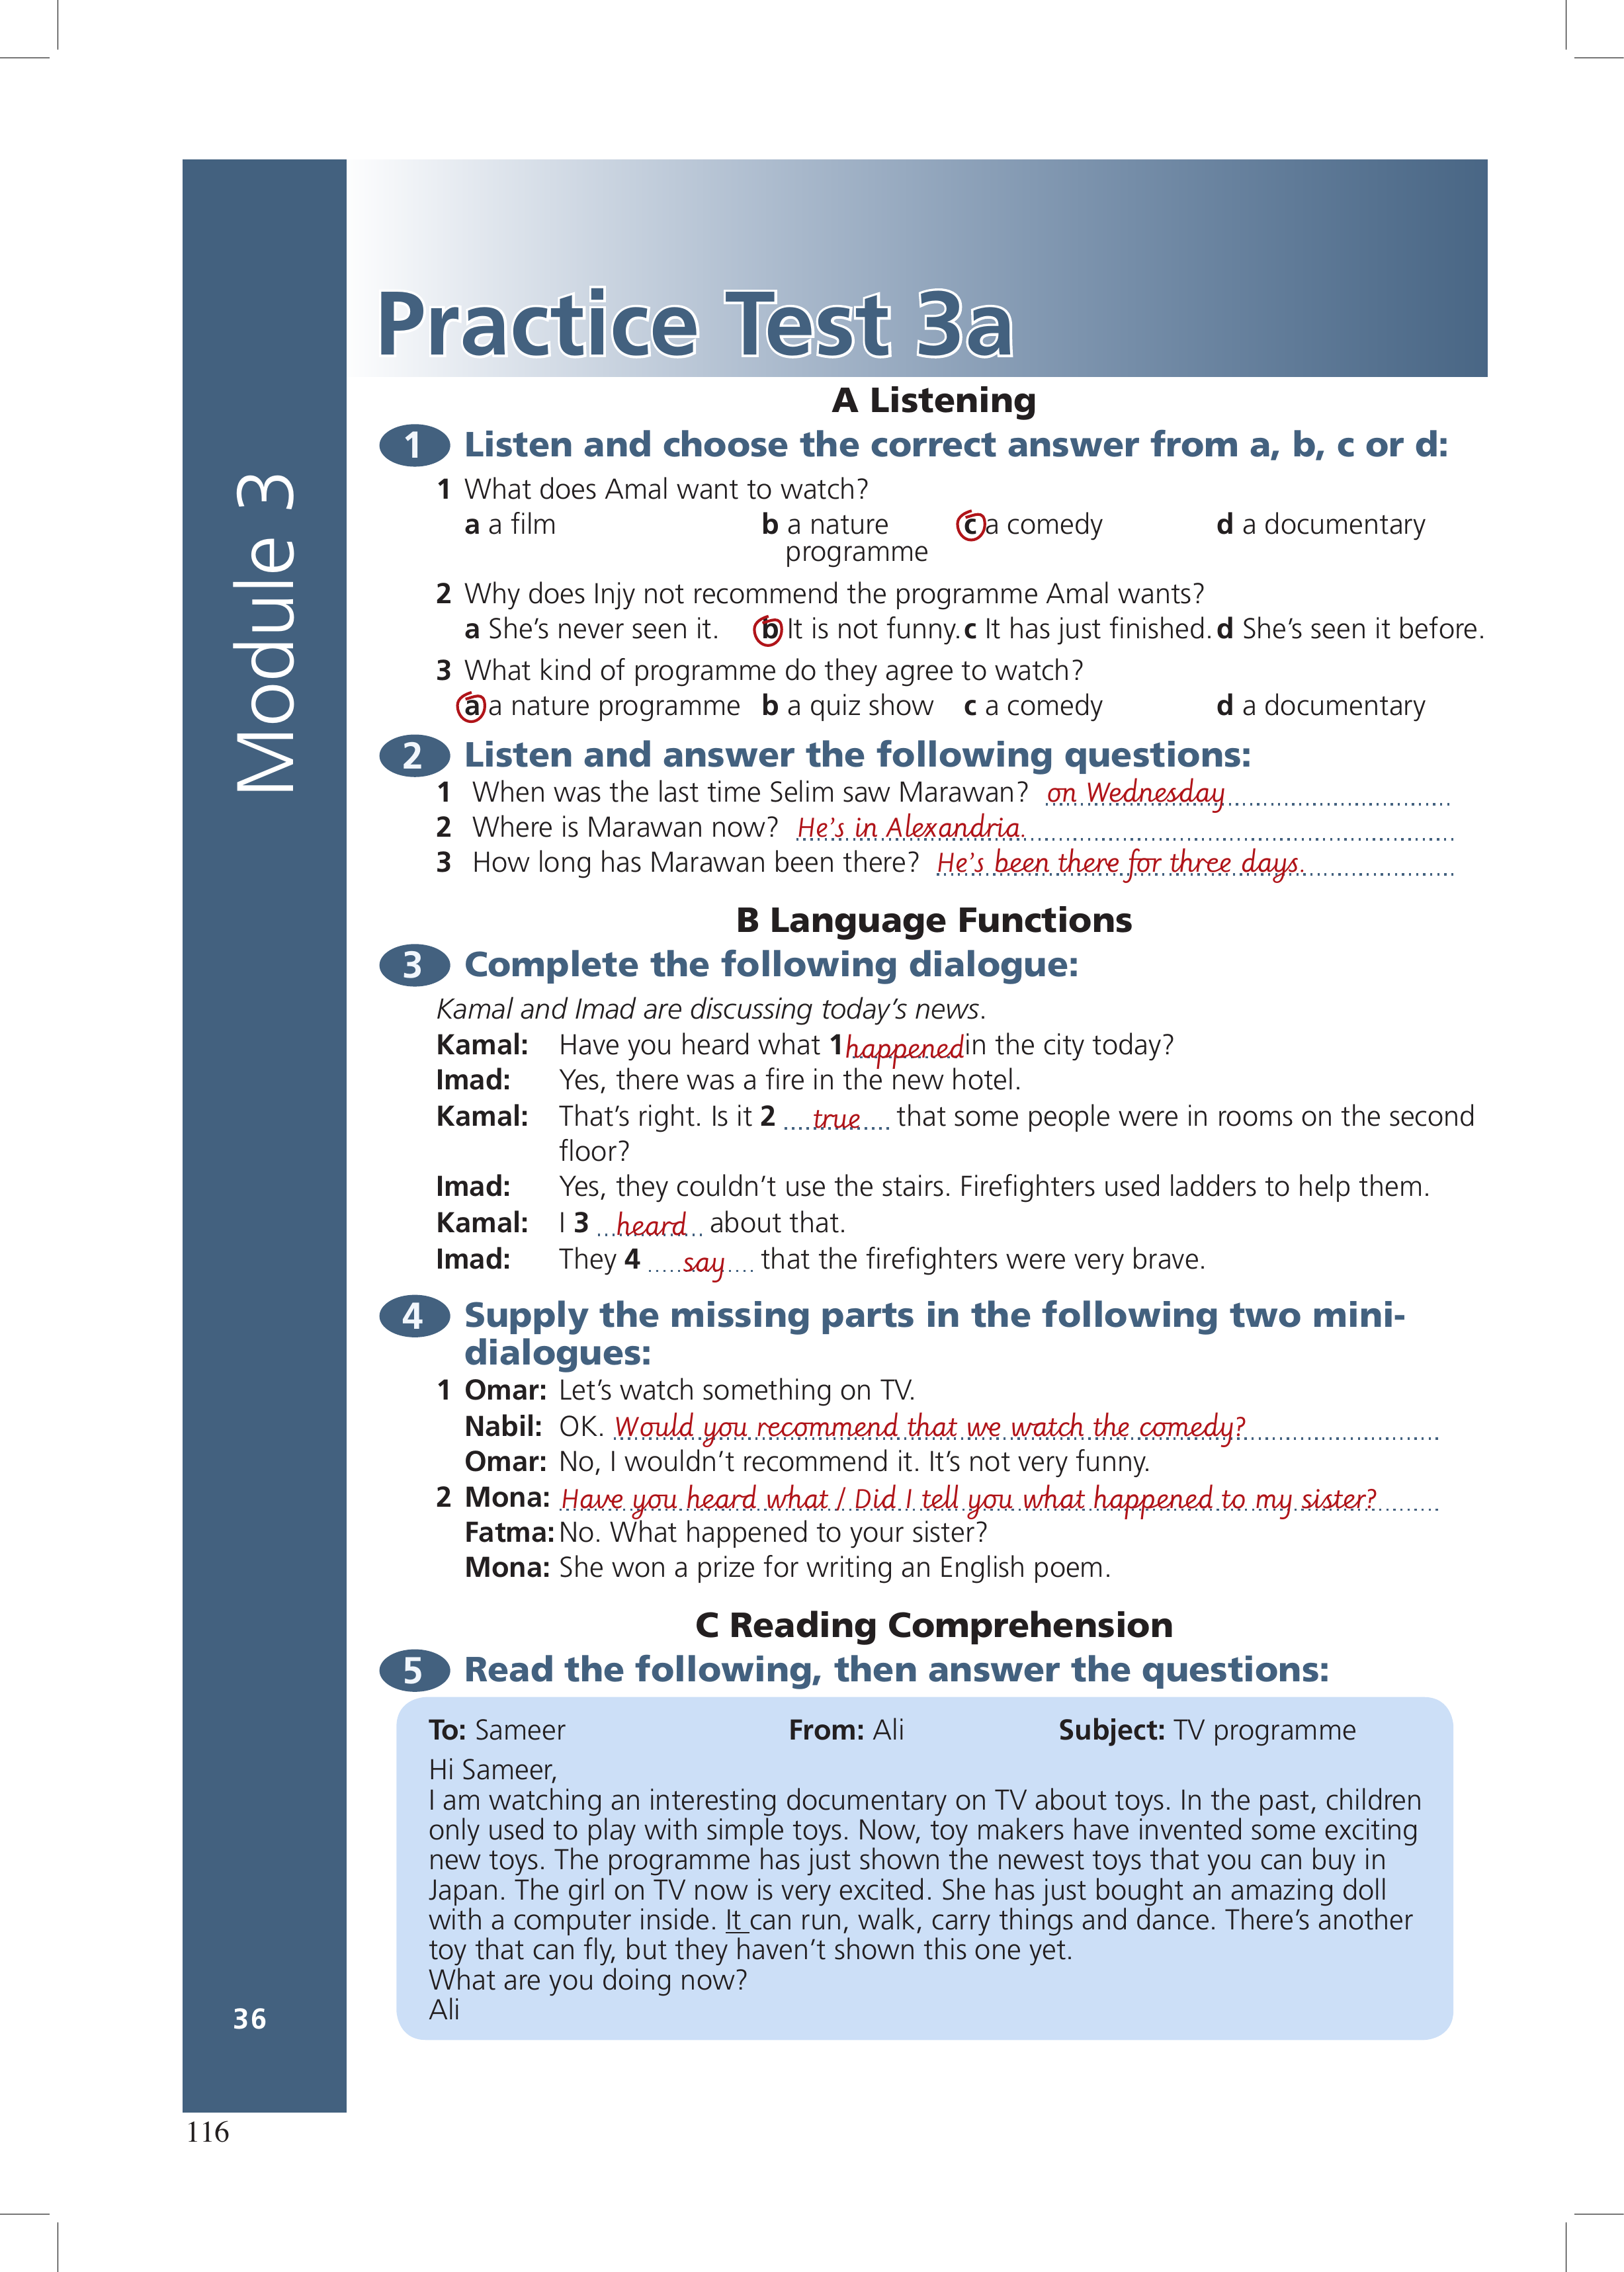 Module 3
Practice Test 3a
A Listening
1 Listen and choose the correct answer from a, b, c or d:
1 What does Amal want to watch?
a a film b a nature programme c a comedy d a documentary
2 Why does Injy not recommend the programme Amal wants?
a She's never seen it. b It is not funny. c It has just finished. d She's seen it before.
3 What kind of programme do they agree to watch?
a a nature programme b a quiz show c a comedy d a documentary
2 Listen and answer the following questions:
1 When was the last time Selim saw Marawan? on Wednesday
2 Where is Marawan now? He's in Alexandria.
3 How long has Marawan been there? He's been there for three days.
B Language Functions
3 Complete the following dialogue:
Kamal and Imad are discussing today's news.
Kamal: Have you heard what 1 happened in the city today?
Imad: Yes, there was a fire in the new hotel.
Kamal: That's right. Is it 2 true that some people were in rooms on the second
floor?
Imad: Yes, they couldn't use the stairs. Firefighters used ladders to help them.
Kamal: I 3 heard about that.
Imad: They 4 say that the firefighters were very brave.
4 Supply the missing parts in the following two mini-
dialogues:
1 Omar: Let's watch something on TV.
Nabil: OK. Would you recommend that we watch the comedy?
Omar: No, I wouldn't recommend it. It's not very funny.
2 Mona: Have you heard what / Did I tell you what happened to my sister?
Fatma: No. What happened to your sister?
Mona: She won a prize for writing an English poem.
C Reading Comprehension
5 Read the following, then answer the questions:
To: Sameer From: Ali Subject: TV programme
Hi Sameer,
I am watching an interesting documentary on TV about toys. In the past, children
only used to play with simple toys. Now, toy makers have invented some exciting
new toys. The programme has just shown the newest toys that you can buy in
Japan. The girl on TV now is very excited. She has just bought an amazing doll
with a computer inside. It can run, walk, carry things and dance. There's another
toy that can fly, but they haven't shown this one yet.
What are you doing now?
Ali
36
116